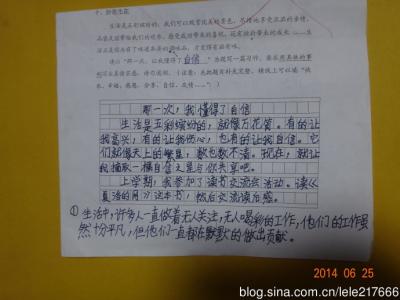 十、妙笔生花
生活是五彩缤纷的，我们可以观赏优美的景色，尽情地享受亲品的亲情，
请以“那一次，我懂得了自信”为题写一篇习作。要求用具体的事例
那一次，我懂得了自信
生活是五彩缤纷的，就像万花筒。有的让
我高兴，有的让我伤心，也有的让我自信。它
们就像天上的繁星，数也数不清。现在，就让
我摘取一棵自信之星与你共享吧。
上学期，我参加了读书交流会活动。读《
真活的用》这本书，然后交流读后感。
①生活中，许多人一直做着无人关注，无人喝彩的工作，他们的工作虽
然十分平凡，但他们一直都在默默的做出贡献。
2014 06 25
blog.sina.com.cn/lele217666